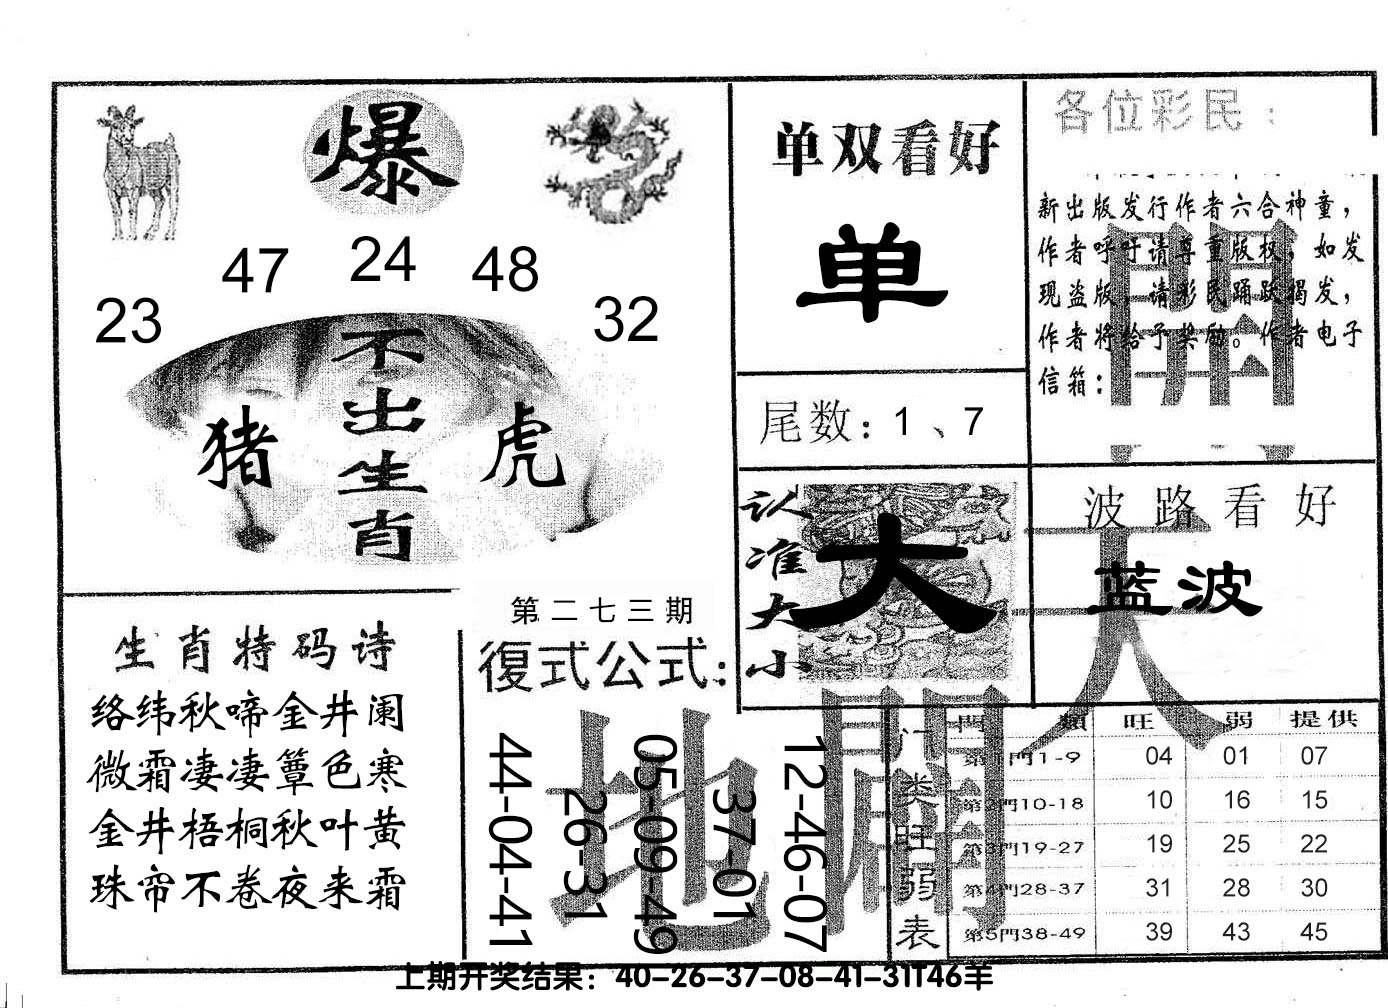 爆
47 24 48
23 32
不出生肖
猪 虎
单双看好
单
尾数：1、7
各位彩民：
新出版发行作者六合神童，
作者呼吁请尊重版权，如发
现盗版，请彩民踊跃揭发，
作者将给予奖励。作者电子
信箱：
開
认准大小
大
波路看好
蓝波
天
生肖特码诗
络纬秋啼金井阑
微霜凄凄簟色寒
金井梧桐秋叶黄
珠帘不卷夜来霜
第二七三期
復式公式：
44-04-41
26-31
05-09-49
37-01
12-46-07
地
門类旺弱表
門類 旺 弱 提供
第1門1-9 04 01 07
第2門10-18 10 16 15
第3門19-27 19 25 22
第4門28-37 31 28 30
第5門38-49 39 43 45
上期开奖结果：40-26-37-08-41-31T46羊